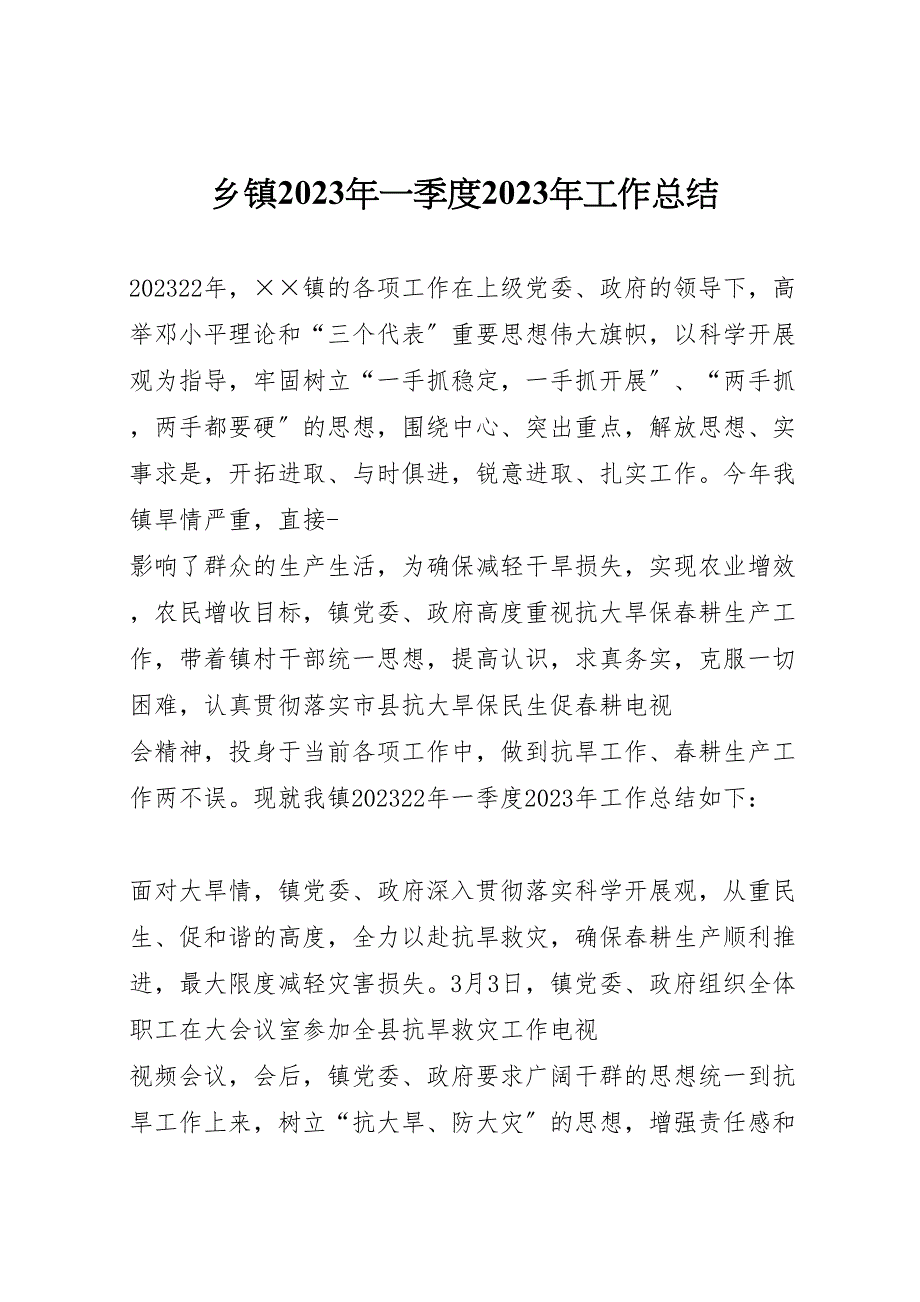 乡镇2023年一季度2023年工作总结
202322年，××镇的各项工作在上级党委、政府的领导下，高
举邓小平理论和“三个代表〞重要思想伟大旗帜，以科学开展
观为指导，牢固树立“一手抓稳定，一手抓开展〞、“两手抓
，两手都要硬〞的思想，围绕中心、突出重点，解放思想、实
事求是，开拓进取、与时俱进，锐意进取、扎实工作。今年我
镇旱情严重，直接-
影响了群众的生产生活，为确保减轻干旱损失，实现农业增效
，农民增收目标，镇党委、政府高度重视抗大旱保春耕生产工
作，带着镇村干部统一思想，提高认识，求真务实，克服一切
困难，认真贯彻落实市县抗大旱保民生促春耕电视
会精神，投身于当前各项工作中，做到抗旱工作、春耕生产工
作两不误。现就我镇202322年一季度2023年工作总结如下：
面对大旱情，镇党委、政府深入贯彻落实科学开展观，从重民
生、促和谐的高度，全力以赴抗旱救灾，确保春耕生产顺利推
进，最大限度减轻灾害损失。3月3日，镇党委、政府组织全体
职工在大会议室参加全县抗旱救灾工作电视
视频会议，会后，镇党委、政府要求广阔干群的思想统一到抗
旱工作上来，树立“抗大旱、防大灾〞的思想，增强责任感和